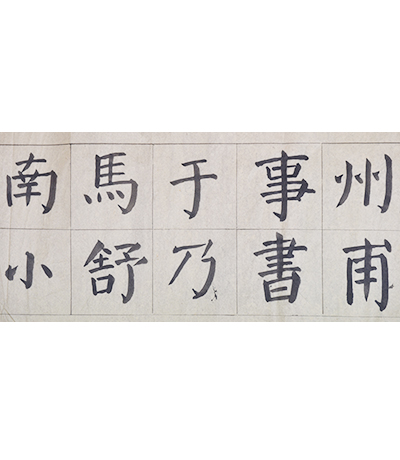 州甫
事書
于乃
馬舒
南小